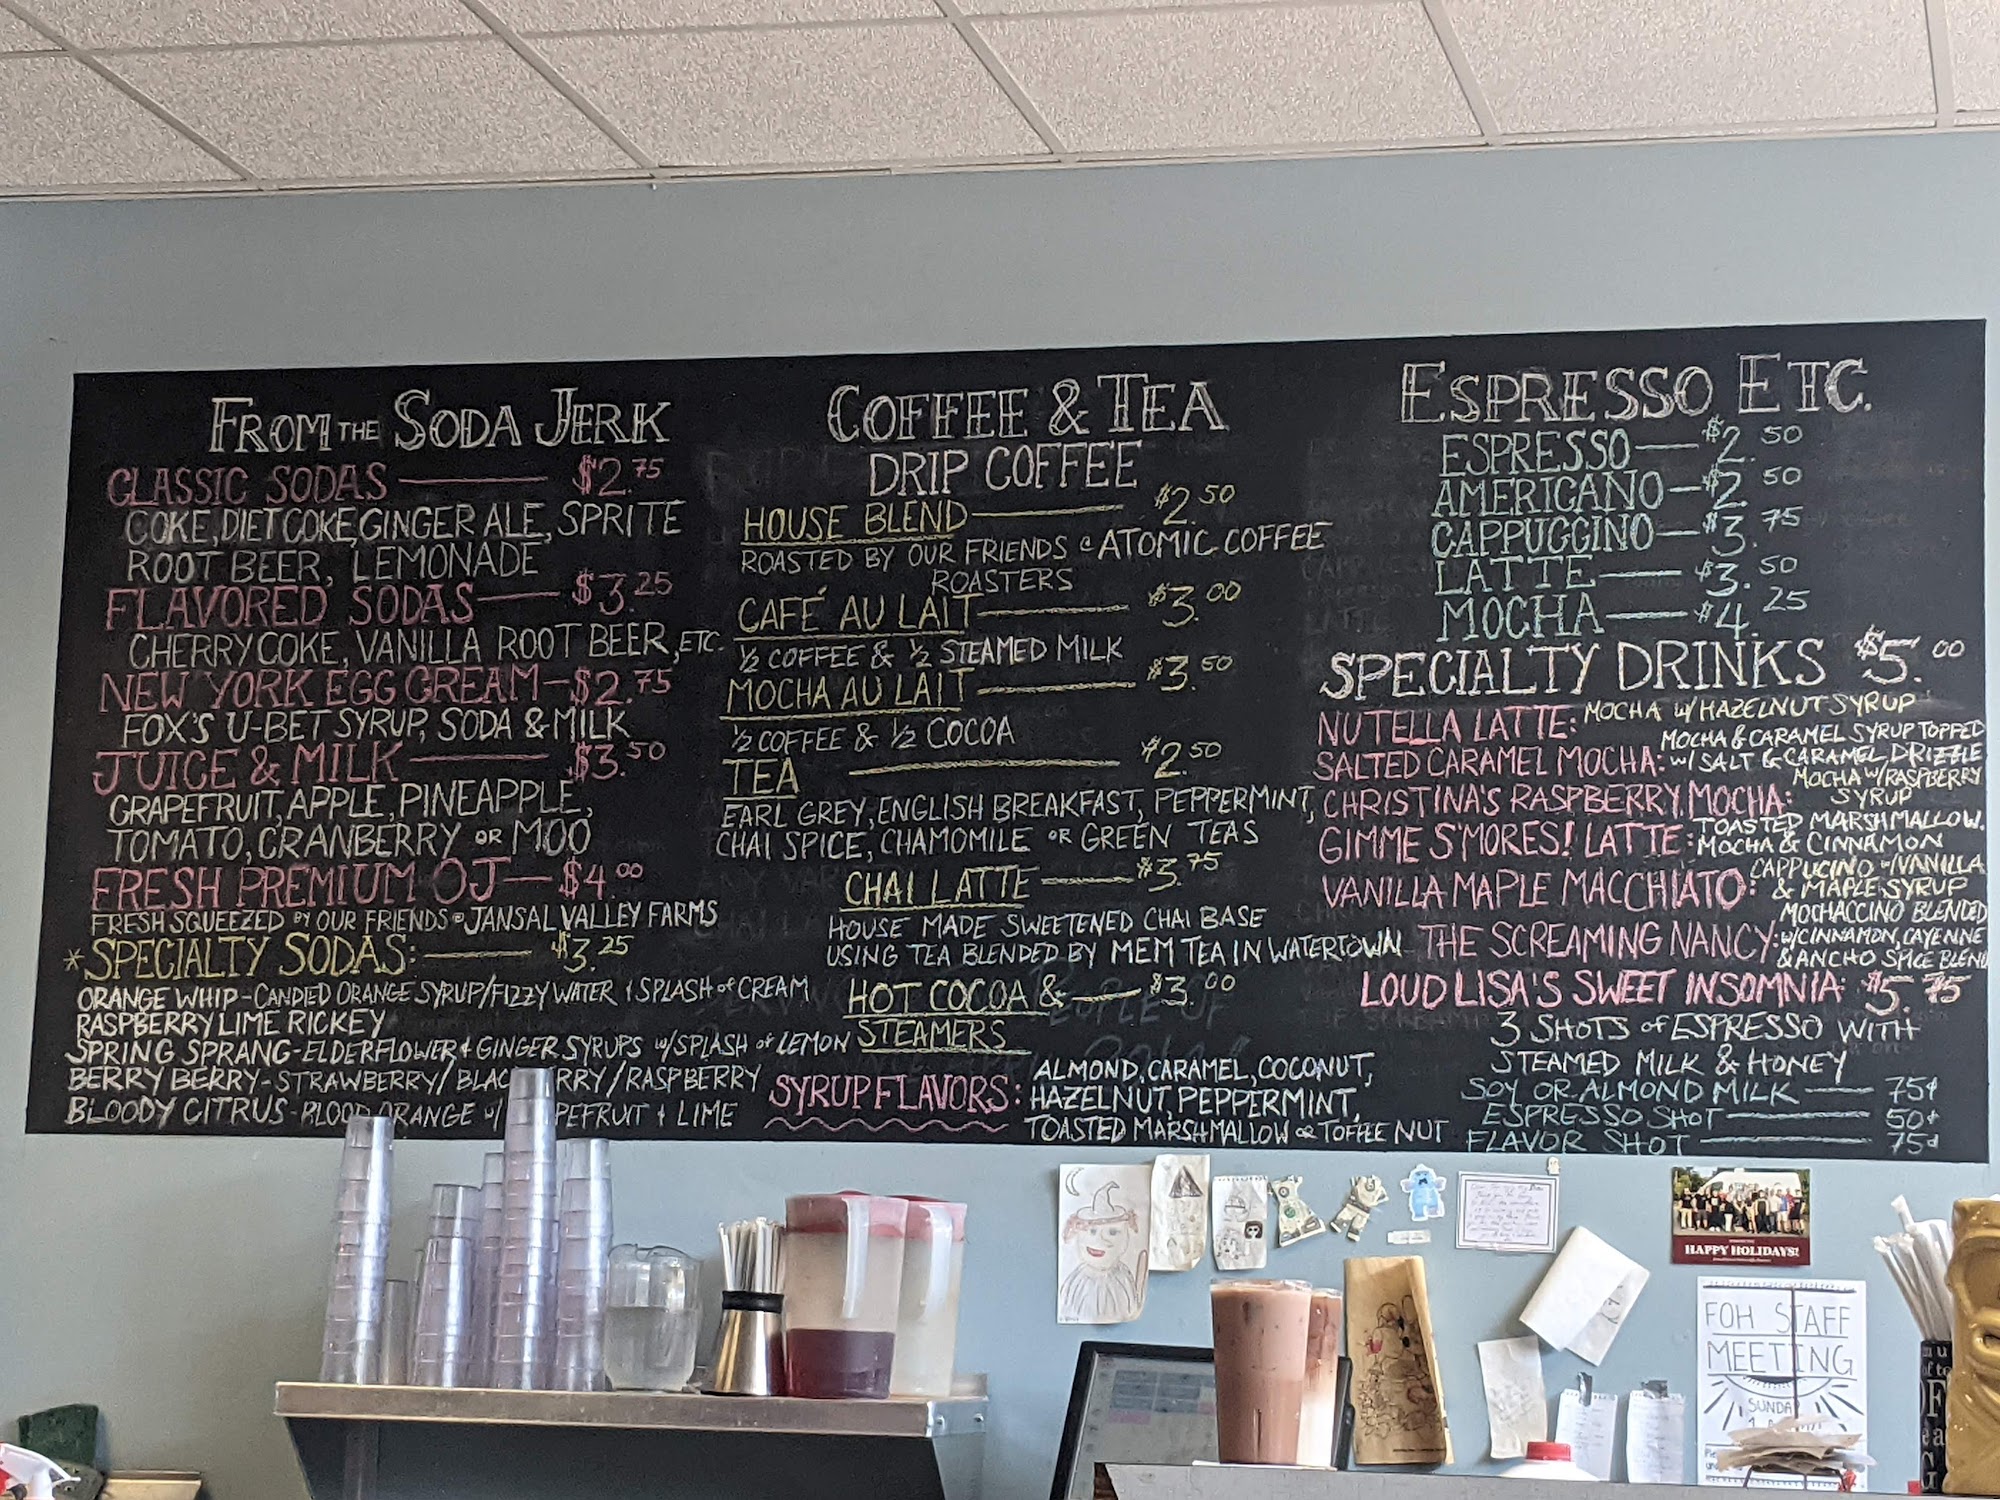 FROM THE SODA JERK
CLASSIC SODAS $2.75
COKE, DIET COKE, GINGER ALE, SPRITE
ROOT BEER, LEMONADE
FLAVORED SODAS $3.25
CHERRY COKE, VANILLA ROOT BEER, ETC.
NEW YORK EGG CREAM $2.75
FOX'S U-BET SYRUP, SODA & MILK
JUICE & MILK $3.50
GRAPEFRUIT, APPLE, PINEAPPLE,
TOMATO, CRANBERRY OR MOO
FRESH PREMIUM OJ $4.00
FRESH SQUEEZED BY OUR FRIENDS @ JANSAL VALLEY FARMS
*SPECIALTY SODAS: $3.25
ORANGE WHIP - CANDIED ORANGE SYRUP/FIZZY WATER & SPLASH OF CREAM
RASPBERRY LIME RICKEY
SPRING SPRANG - ELDERFLOWER & GINGER SYRUPS W/SPLASH OF LEMON
BERRY BERRY - STRAWBERRY/ RRY/RASPBERRY
BLOODY CITRUS - BLOOD ORANGE W/ PEFRUIT & LIME
COFFEE & TEA
DRIP COFFEE
HOUSE BLEND $2.50
ROASTED BY OUR FRIENDS @ ATOMIC COFFEE
ROASTERS
CAFÉ AU LAIT $3.00
½ COFFEE & ½ STEAMED MILK
MOCHA AU LAIT $3.50
½ COFFEE & ½ COCOA
TEA $2.50
EARL GREY, ENGLISH BREAKFAST, PEPPERMINT,
CHAI SPICE, CHAMOMILE OR GREEN TEAS
CHAI LATTE $3.75
HOUSE MADE SWEETENED CHAI BASE
USING TEA BLENDED BY MEM TEA IN WATERTOWN
HOT COCOA & $3.00
STEAMERS
SYRUP FLAVORS: ALMOND, CARAMEL, COCONUT,
HAZELNUT, PEPPERMINT,
TOASTED MARSHMALLOW OR TOFFEE NUT
ESPRESSO ETC.
ESPRESSO $2.50
AMERICANO $2.50
CAPPUCCINO $3.75
LATTE $3.50
MOCHA $4.25
SPECIALTY DRINKS $5.00
NUTELLA LATTE: MOCHA W/HAZELNUT SYRUP
SALTED CARAMEL MOCHA: MOCHA & CARAMEL SYRUP TOPPED
W/SALT & CARAMEL DRIZZLE
CHRISTINA'S RASPBERRY MOCHA: MOCHA W/RASPBERRY
SYRUP
GIMME S'MORES! LATTE: TOASTED MARSHMALLOW.
MOCHA & CINNAMON
VANILLA MAPLE MACCHIATO: CAPPUCINO W/VANILLA
& MAPLE SYRUP
THE SCREAMING NANCY: MOCHACCINO BLENDED
W/CINNAMON, CAYENNE
& ANCHO SPICE BLEND
LOUD LISA'S SWEET INSOMNIA: $5.75
3 SHOTS OF ESPRESSO WITH
STEAMED MILK & HONEY
SOY OR ALMOND MILK 75¢
ESPRESSO SHOT 50¢
FLAVOR SHOT 75¢
HAPPY HOLIDAYS!
FOH STAFF
MEETING
SUNDAY